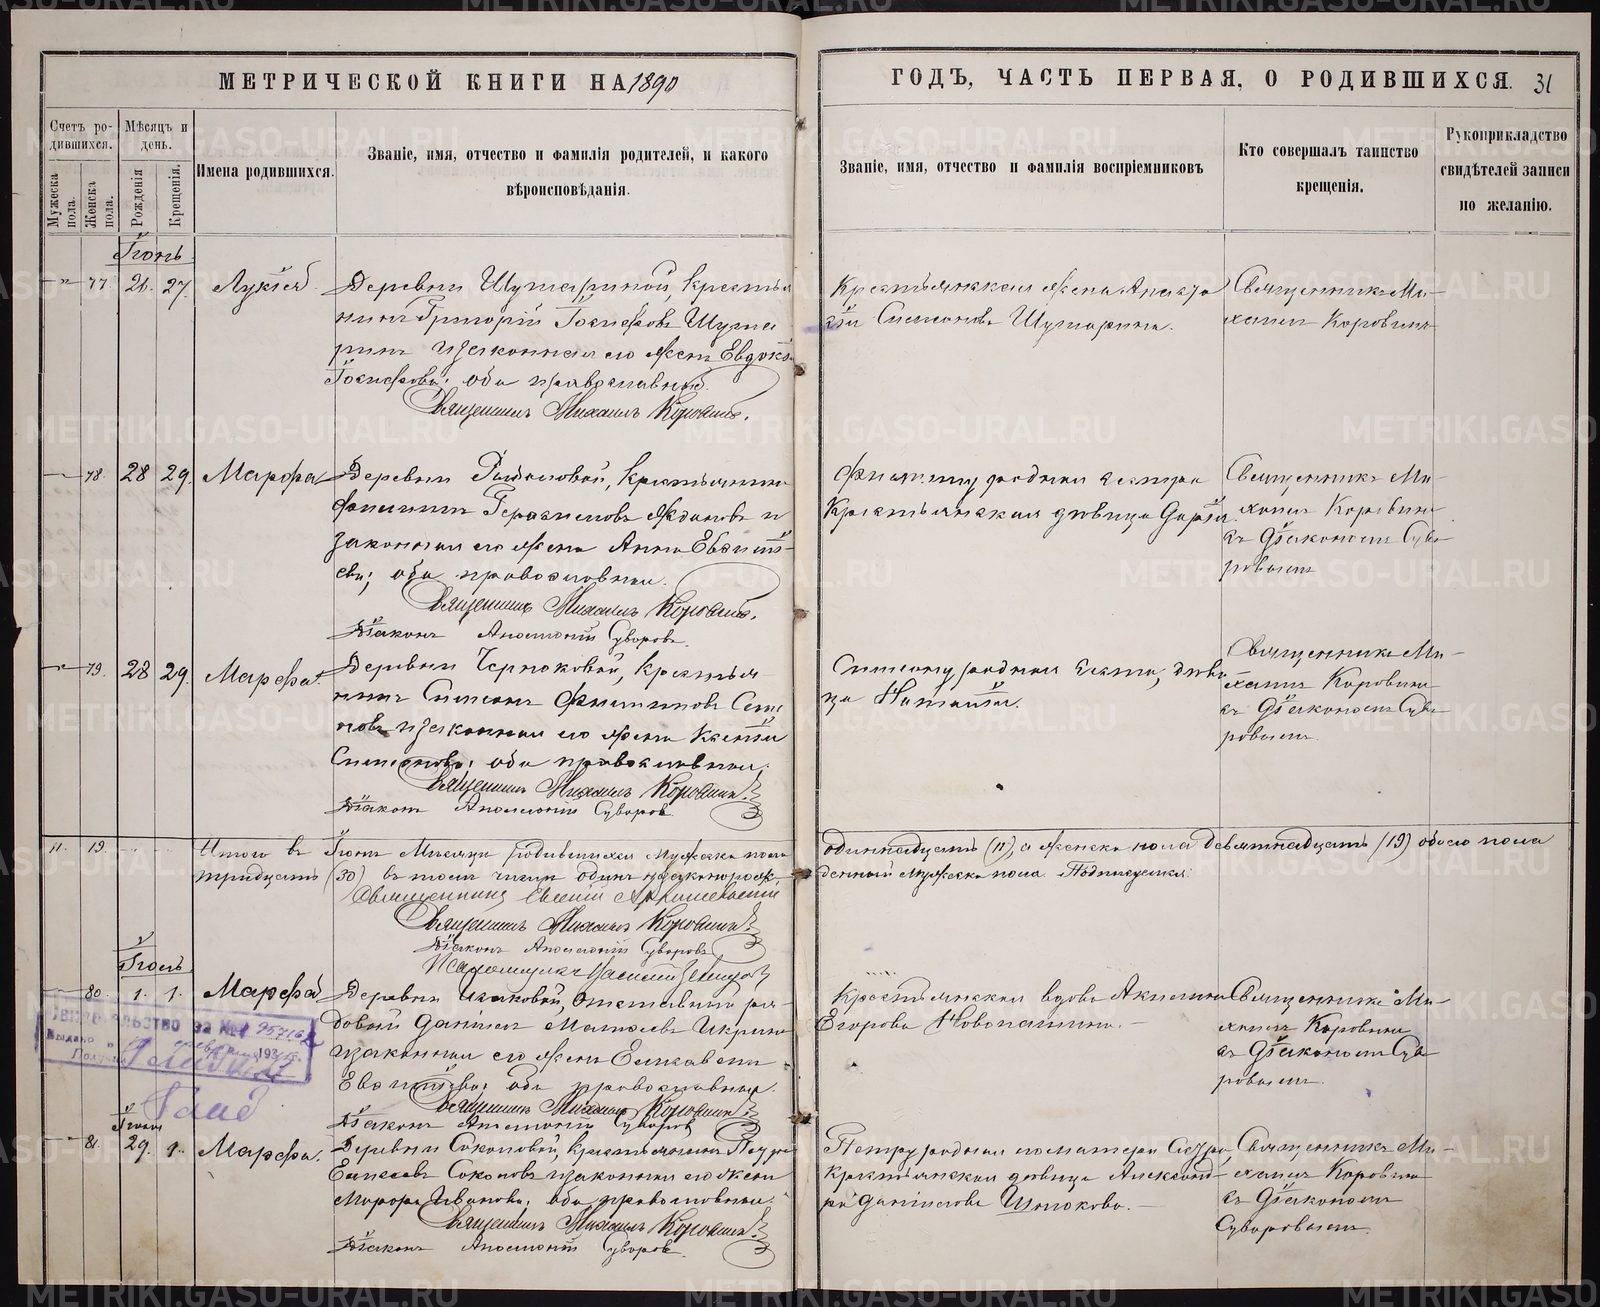 МЕТРИЧЕСКОЙ КНИГИ НА 1890
ГОДЪ, ЧАСТЬ ПЕРВАЯ, О РОДИВШИХСЯ. 31
Счетъ ро-
дившихся.
Мѣсяцъ и
день.
Мужеска
пола.
Женска
пола.
Рожденія
Крещенія.
Имена родившихся.
Званіе, имя, отчество и фамилія родителей, и какого
вѣроисповѣданія.
Званіе, имя, отчество и фамилія воспріемниковъ
Кто совершалъ таинство
крещенія.
Рукоприкладство
свидѣтелей записи
по желанію.
Іюнь
77. 26. 27.
Лукія
Деревни Шутариной, крестья
нинъ Григорій Іосифовъ Шута
ринъ и законная его жена Евдокія
Іосифова; оба православные.
Священникъ Михаилъ Коровинъ.
Крестьянская жена Анаста
сія Симеонова Шутарина.
Священникъ Ми-
хаилъ Коровинъ
78. 28 29.
Марфа
Деревни крестьянинъ
Филиппъ Герасимовъ Ждановъ и
законная его жена Анна
оба православные.
Священникъ Михаилъ Коровинъ.
Діаконъ Анатолій Суворовъ.
Филиппу родная сестра
Крестьянская дѣвица Дарія.
Священникъ Ми-
хаилъ Коровинъ
съ Діакономъ Суво
ровымъ
79. 28 29.
Марфа.
Деревни Черноковой, крестья
нинъ Симеонъ Филипповъ Семе
новъ и законная его жена Ксенія
Симеонова; оба православные.
Священникъ Михаилъ Коровинъ
Діаконъ Анатолій Суворовъ
Симеону родная сестра, дѣви
ца Наталія.
Священникъ Ми-
хаилъ Коровинъ
съ Діакономъ Суво
ровымъ.
11. 19.
Итого въ Іюнѣ Мѣсяцѣ родившихся Мужеска пола
одиннадцать (11), а женска пола девятнадцать (19) обоего пола
тридцать (30) въ томъ числѣ одинъ незаконорож-
денный мужеска пола. Подписуемся:
Священникъ Евгеній
Священникъ Михаилъ Коровинъ
Діаконъ Анатолій Суворовъ
Псаломщикъ Василій
Іюль
80. 1. 1.
Марфа
Деревни Исаковой, отставной ря-
довой Даніилъ Матвѣевъ
и законная его жена Елисавета
оба православные.
Священникъ Михаилъ Коровинъ
Діаконъ Анатолій Суворовъ
Крестьянская вдова Акилина
Егорова Новопашина.
Священникъ Ми-
хаилъ Коровинъ
съ Діакономъ Суво
ровымъ.
Іюня
81. 29. 1.
Марфа.
Деревни Соколовой, крестьянинъ Петръ
Елисеевъ Соколовъ и законная его жена
Марфа Иванова; оба православные.
Священникъ Михаилъ Коровинъ
Діаконъ Анатолій Суворовъ.
Петру родная по матери сестра
крестьянская дѣвица Александ-
ра Даніилова Шипокова.
Священникъ Ми-
хаилъ Коровинъ
съ Діакономъ
Суворовымъ.
METRIKI.GASO-URAL.RU